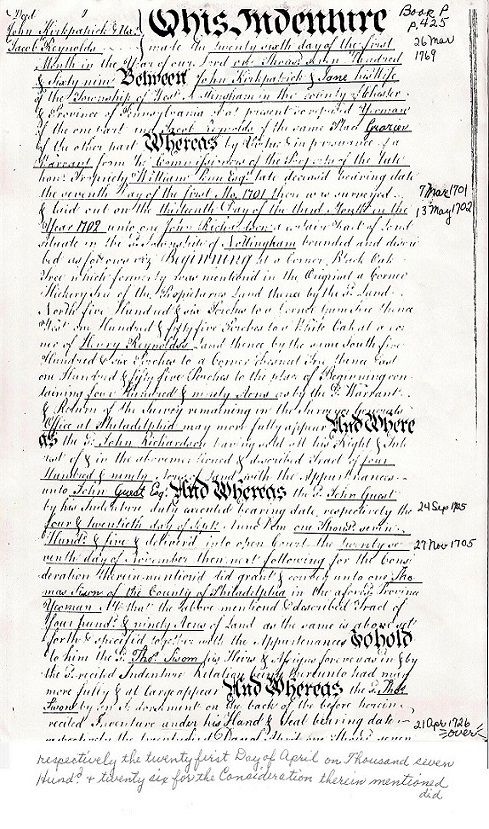 Deed
John Kirkpatrick & Ux.
Jacob Reynolds
This Indenture
Book P
p. 425
made the twenty sixth day of the first
26 Mar
1769
Month in the Year of our Lord one Thousand Seven Hundred
& Sixty nine Between John Kirkpatrick & Jane his Wife
of the Township of West Nottingham in the county of Chester
& Province of Pennsylvania Yeoman
of the one part and Jacob Reynolds of the same Place Grazier
of the other part Whereas by Virtue & in pursuance of a
Warrant from the Commissioners of the Property of the late
hon. Proprietary William Penn Esq. late deceased bearing date
the seventh Day of the first Mo. 1701 there was surveyed
7 Mar 1701
& laid out on the thirteenth Day of the third Month in the
13 May 1702
Year 1702 unto one John Richardson a certain Tract of Land
situate in the Township of Nottingham bounded and descri
bed as follows viz Beginning at a corner Black Oak
Tree which formerly was mentioned in the Original a Corner
Hickery Tree of the Proprietaries Land thence by the sd. Land
North five Hundred & six Perches to a Corner Gum Tree thence
West one Hundred & fifty five Perches to a White Oak at a cor
ner of Henry Reynolds's Land thence by the same South five
Hundred & six Perches to a Corner Chesnut Tree thence East
one Hundred & fifty five Perches to the place of Beginning con
taining four Hundred & ninety Acres as by the sd. Warrant
& Return of the Survey remaining in the Surveyor Generals
Office at Philadelphia may more fully appear And Where
as the sd. John Richardson having sold all his Right & Inte
rest of & in the above mentioned & described Tract of four
Hundred & ninety Acres of Land with the Appurtenances
unto John Guest Esq. And Whereas the sd. John Guest
by his Indenture duly executed bearing date respectively the
24 Sep 1705
four & twentieth day of Sept. Anno Dom one Thousd. seven
Hundd. & five & delivered into open Court the twenty se
27 Nov 1705
venth day of November then next following for the Consi
deration therein mentioned did grant & convey unto one Tho
mas Tison of the County of Philadelphia in the aforesd. Province
Yeoman All that the above mentiond & described Tract of
Four hundd. & ninety Acres of Land as the same is above set
forth & specified together with the Appurtenances To hold
to him the sd. Thos. his Heirs & Assigns for ever as in & by
the sd. recited Indenture Relation being thereunto had may
more fully & at large appear And Whereas the sd. Thos.
by an Indorsement on the back of the before herein
recited Indenture under his Hand & Seal bearing date
21 Apr 1726
over
respectively the twenty first Day of April on Thousand seven
Hundd. & twenty six for the Consideration therein mentioned
did